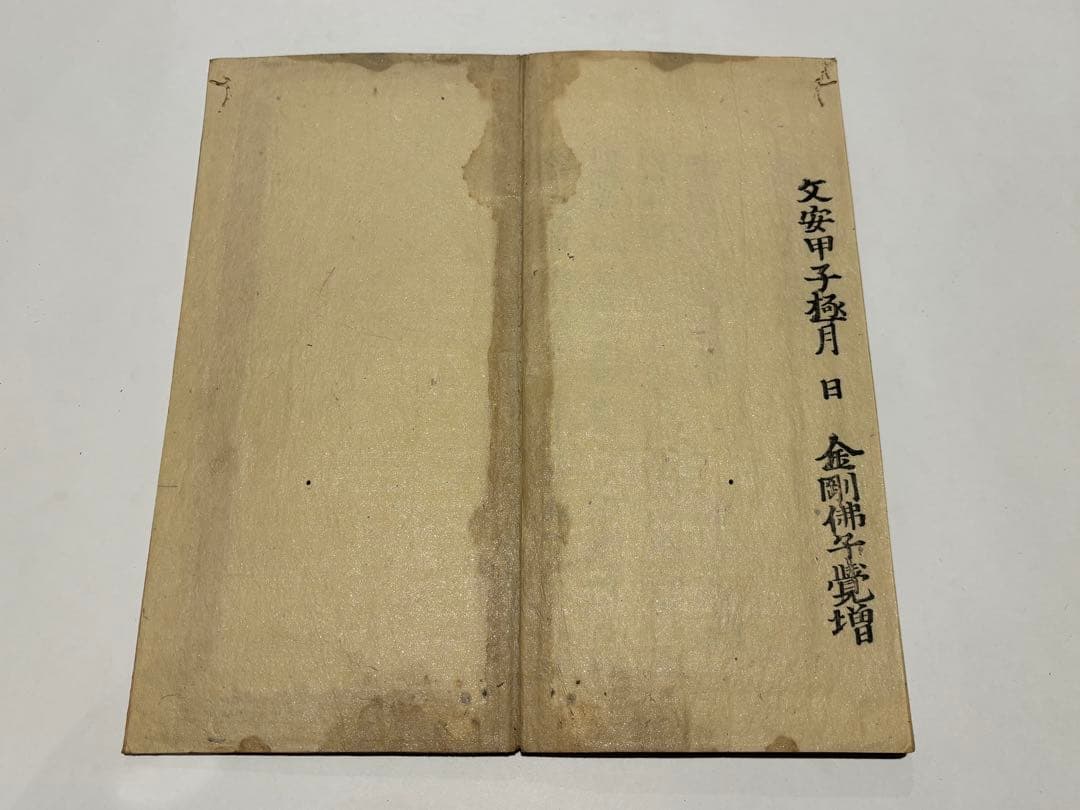 文安甲子極月 日 金剛佛子覺増